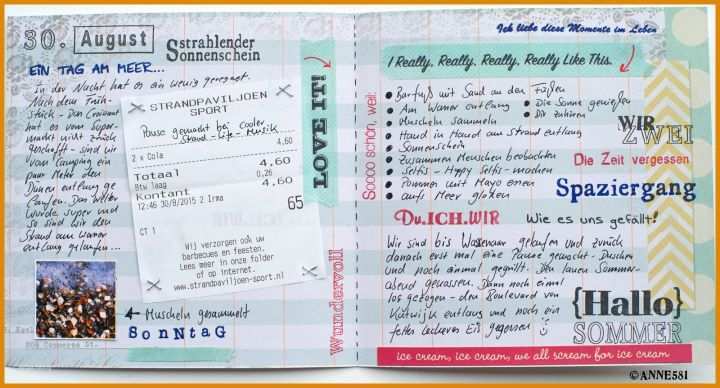 30. August
Sstrahlender
Sonnenschein
EIN TAG AM MEER...
In der Nacht hat es ein wenig geregnet.
Nach dem Früh-
stück - Das Croissant
hat es vom Super-
markt nicht zurück
geschafft - sind wir
vom Camping ein
paar Meter den
Dünen entlang ge
laufen. Das Wetter
wurde super und
so sind wir den
Strand am Wasser
entlang gelaufen...
STRANDPAVILJOEN
SPORT
Pause gemacht bei cooler
Strand-Life-Musik
2 x Cola 4,60
Totaal 4,60
Btw laag 0,26
Kontant 4,60
12:46 30/8/2015 2 Irma 65
CT 1
Wij verzorgen ook uw
barbecues en feesten.
Lees meer in onze folder
of op internet.
www.strandpaviljoen-sport.nl
← Muscheln gesammelt
SONNTAG
LOVE IT!
Wundervoll
Ich liebe diese Momente im Leben
I Really, Really, Really, Really Like This.
Soooo schön, weil:
Barfuß mit Sand an den Füßen
Am Wasser entlang
Die Sonne genießen
Muscheln sammeln
Dir zuhören
Hand in Hand am Strand entlang
Sonnenschein
Zusammen Menschen beobachten
Selfis - Happy Selfis - machen
Pommes mit Mayo essen
aufs Meer gucken
WIR
ZWEI
Die Zeit vergessen
Spaziergang
Du.ICH.WIR
Wie es uns gefällt!
Wir sind bis Wassenaar gelaufen und zurück
danach erst mal eine Pause gemacht - Duschen
und noch einmal gegrillt. Den lauen Sommer-
abend genossen. Dann noch einmal
los gezogen - den Boulevard von
Katwijk entlang und noch ein
fetter leckeres Eis gegessen
{Hallo}
SOMMER
ice cream, ice cream, we all scream for ice cream
©ANNE581